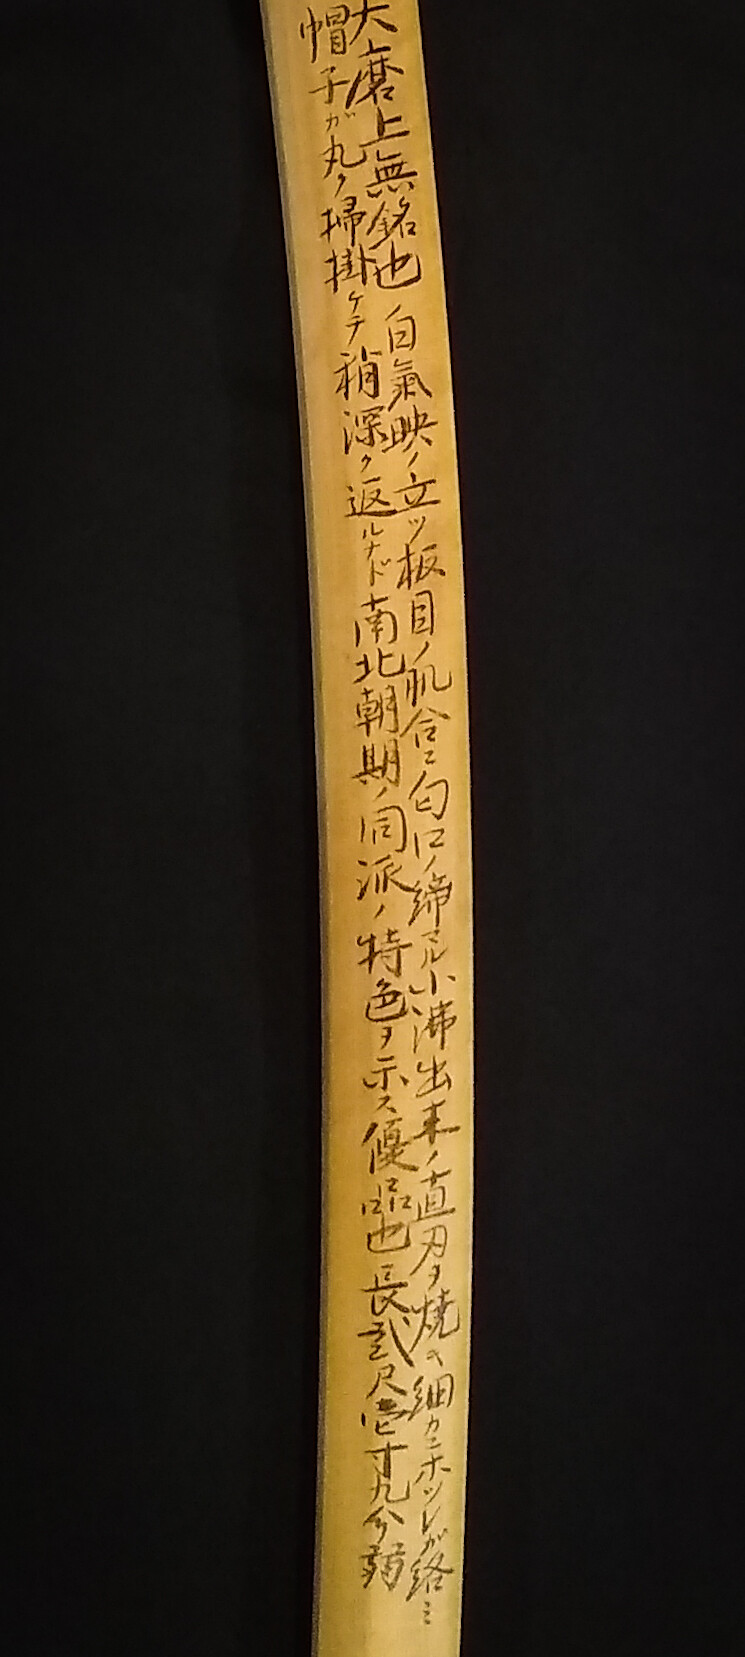 大磨上無銘也 白氣映ノ立ツ板目ノ肌合ニ匂口ノ締マル小沸出来ノ直刃ヲ焼キ細カニホツレガ絡ミ
帽子ガ丸ク掃掛ケテ稍深ク返ルナド南北朝期ノ同派ノ特色ヲ示ス優品也 長貳尺壱寸九分弱